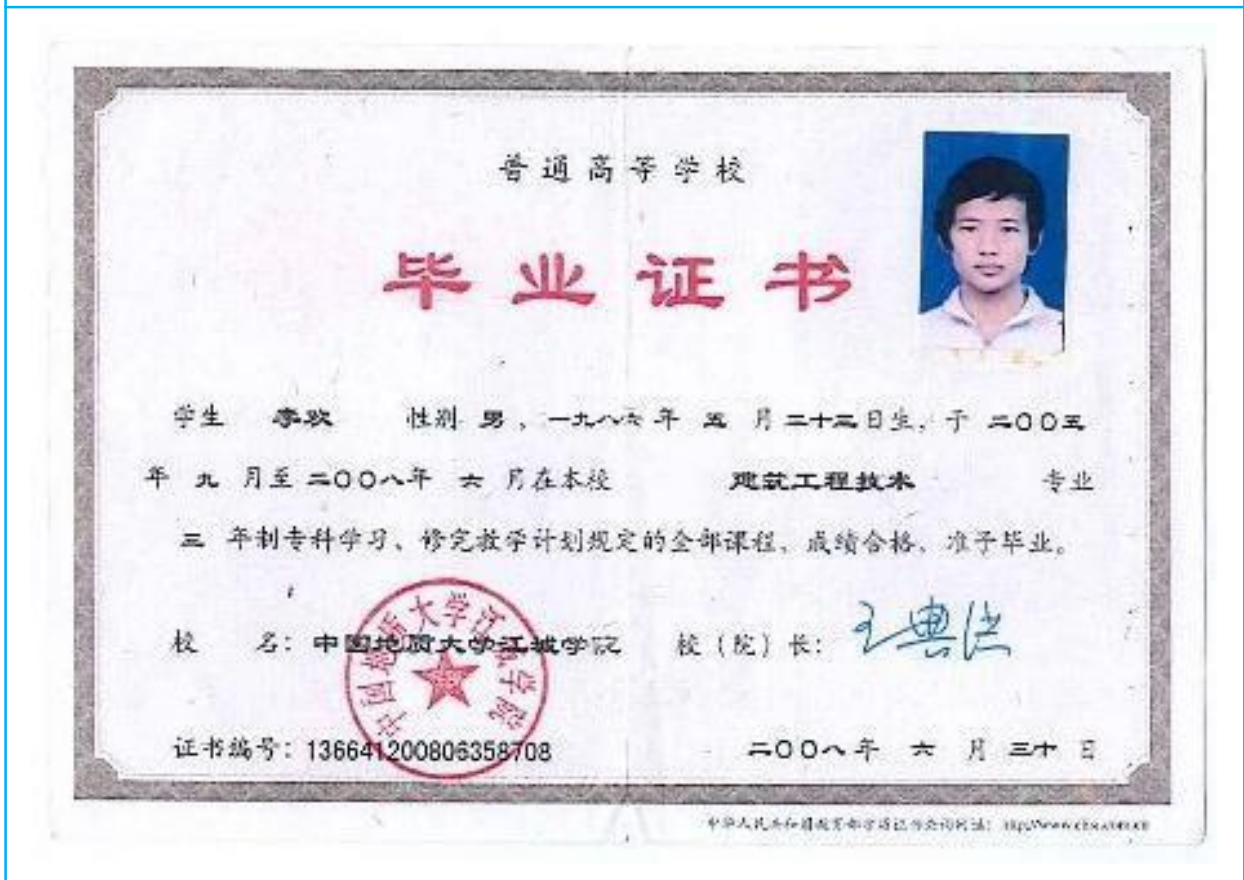 普通高等学校
毕业证书
学生 李欢 性别 男，一九八六年 五 月二十二日生，于 二〇〇五
年 九 月至 二〇〇八年 六 月在本校 建筑工程技术 专业
三 年制专科学习、修完教学计划规定的全部课程、成绩合格、准予毕业。
校 名：中国地质大学江城学院 校（院）长：王典洪
中国地质大学江城学院
证书编号：136641200806358708 二〇〇八年 六 月 三十 日
中华人民共和国教育部学历证书查询网址：http://www.chsi.com.cn